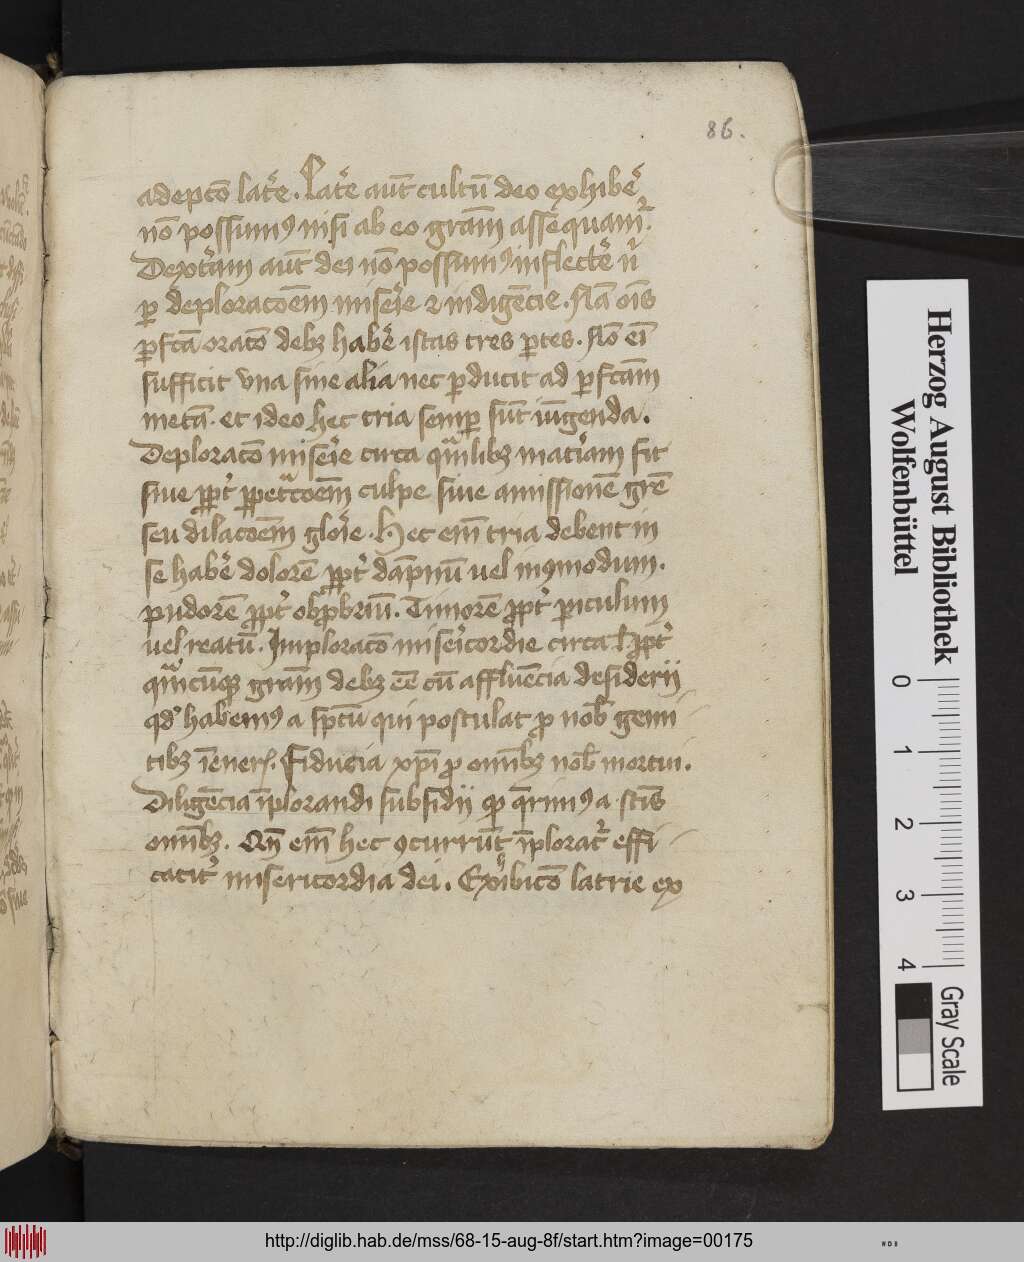 86.
adeptō lat᷑e. Lat᷑e aūt cultū deo exhibe᷑
nō possumꝰ nisi ab eo grām assequam᷑.
Dext᷑am aūt dei nō possumꝰ inflecte᷑ n̄
ꝑ deploracōem mise᷑ie ⁊ indigēcie. Nā oīs
ꝑfcā oratō debꝫ habe᷑ istas tres ꝑtes. Nō eī
sufficit vna sine alia nec ꝑducit ad ꝑfcām
metā. et ideo hec tria semꝑ sūt iūgenda.
Deploratō mise᷑ie circa qͣmlibꝫ mat᷑iam fit
siue ꝓpt᷑ ꝑpetͣcōem culpe siue amissionē grē
seu dilacōem glo᷑ie. Hec em̄ tria debent in
se habe᷑ dolorē ꝓpt᷑ dāpnū vel inꝯmodum.
pudorē ꝓpt᷑ obꝓbriū. Timorē ꝓpt᷑ ꝑiculum
uel reatū. Imploratō mise᷑icordie circa
qͣmcūqꝫ grām debꝫ eē cū affluēcia desiderij
qd᷑ habemꝰ a spūctu qui postulat ꝓ nob᷑ gemi
tibꝫ īener᷑. Fiducia xp̄i ꝓ omībꝫ nob᷑ mortui.
Diligēcia īplorandi subsidij qd q̄rimꝰ a sctīs
omībꝫ. Qn̄ em̄ hec ꝯcurrūt īplorat᷑ effi
cacit᷑ misericordia dei. Exhibicō latrie ex
Herzog August Bibliothek
Wolfenbüttel
0 1 2 3 4
Gray Scale
http://diglib.hab.de/mss/68-15-aug-8f/start.htm?image=00175